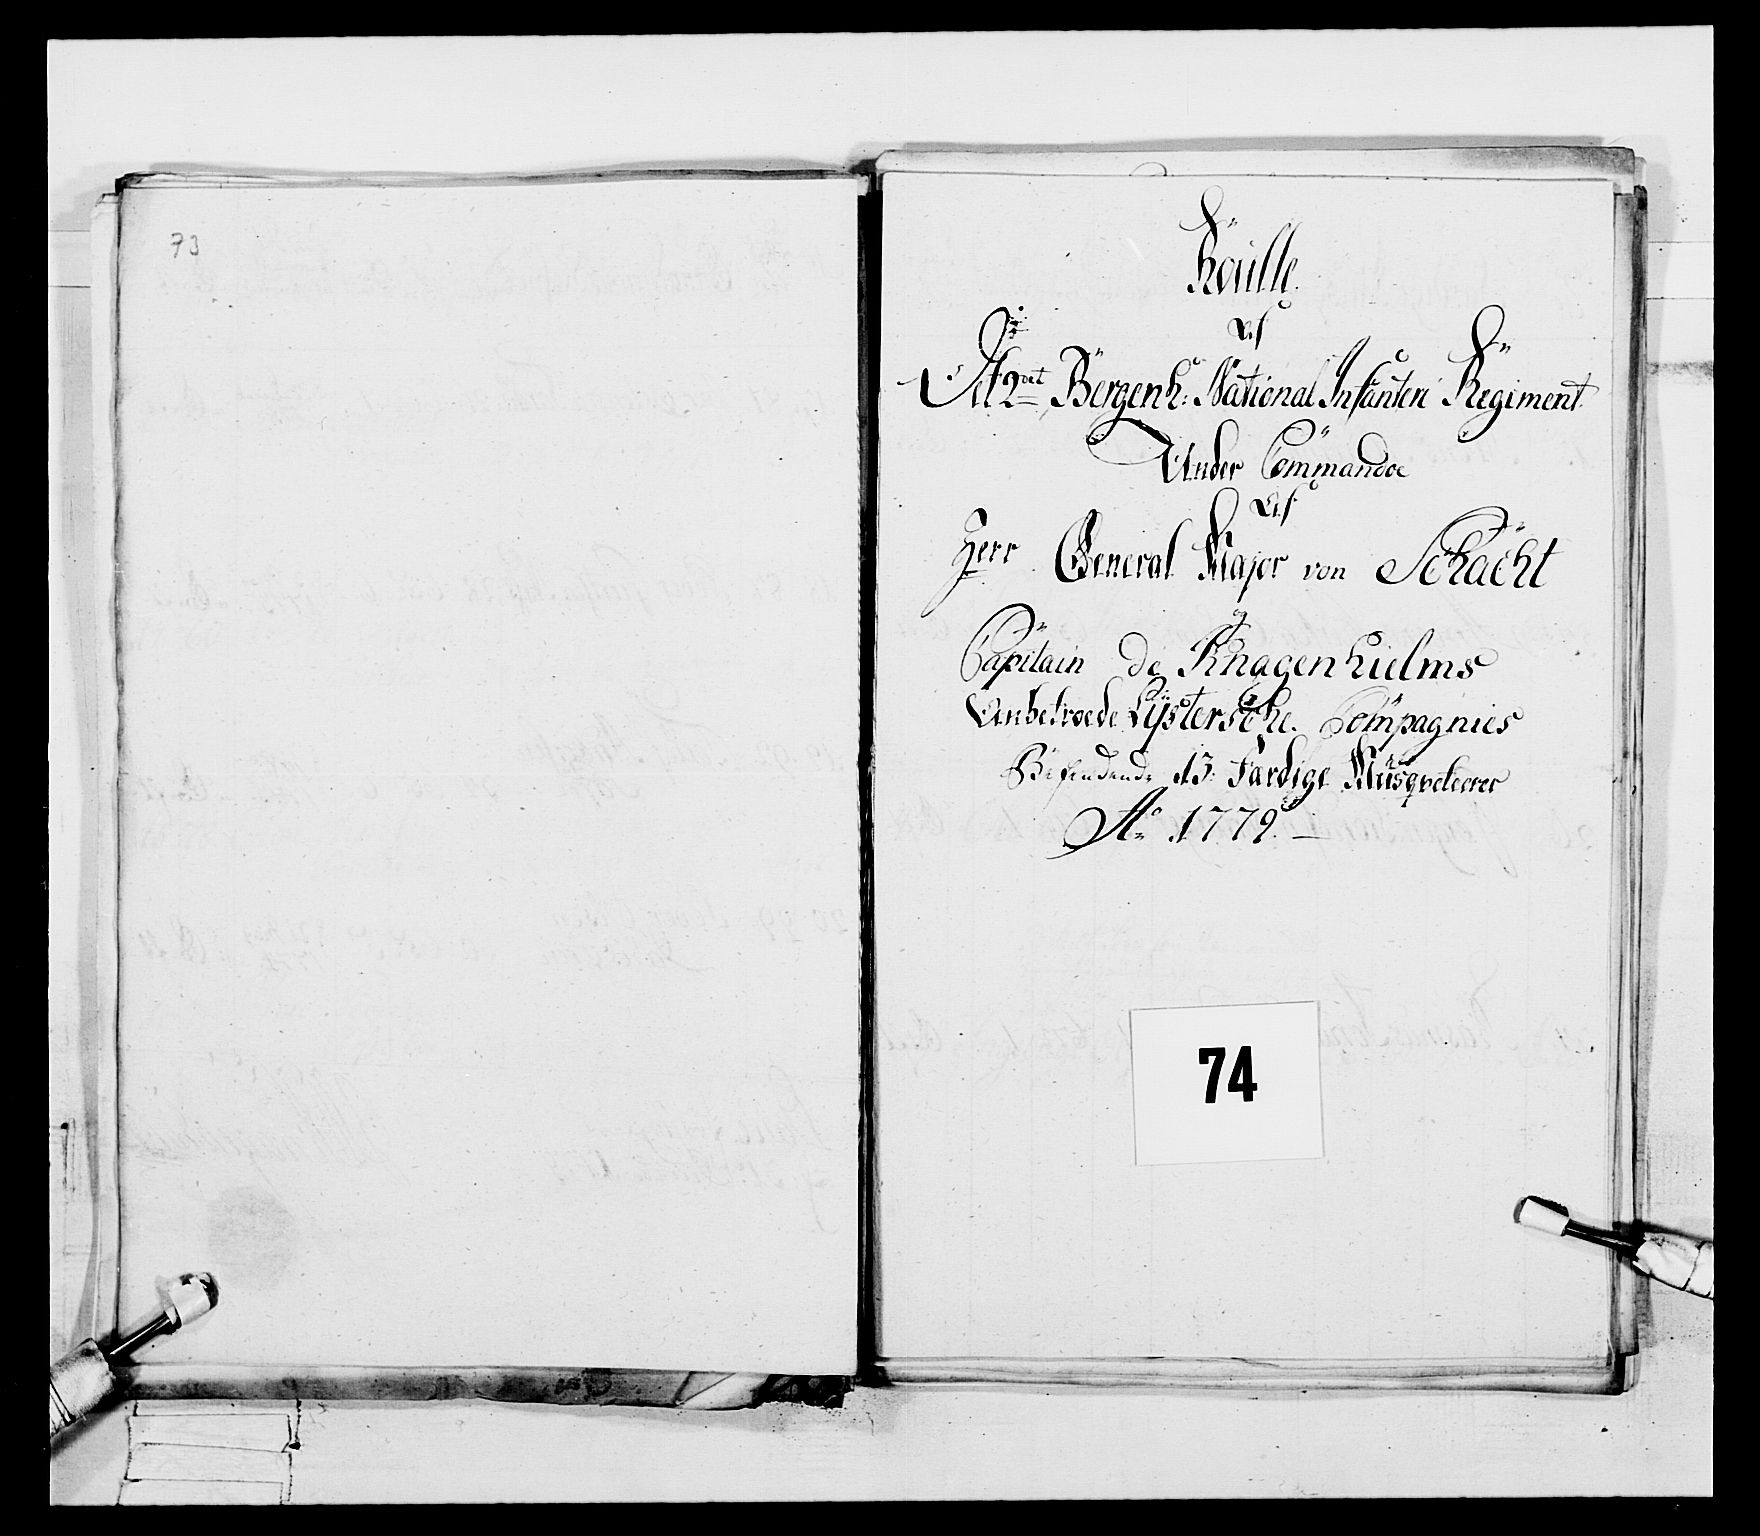 73
Roulle
Af
Det 2det Bergenh: National Infanteri Regiment
Under Commandoe
Af
Herr General Major von Schacht
og
Capitain de Knagenhielms
Anbetroede Lystersche Compagnies
Befindende 13: Færdige Musqveteerer
Ao 1779. —
74